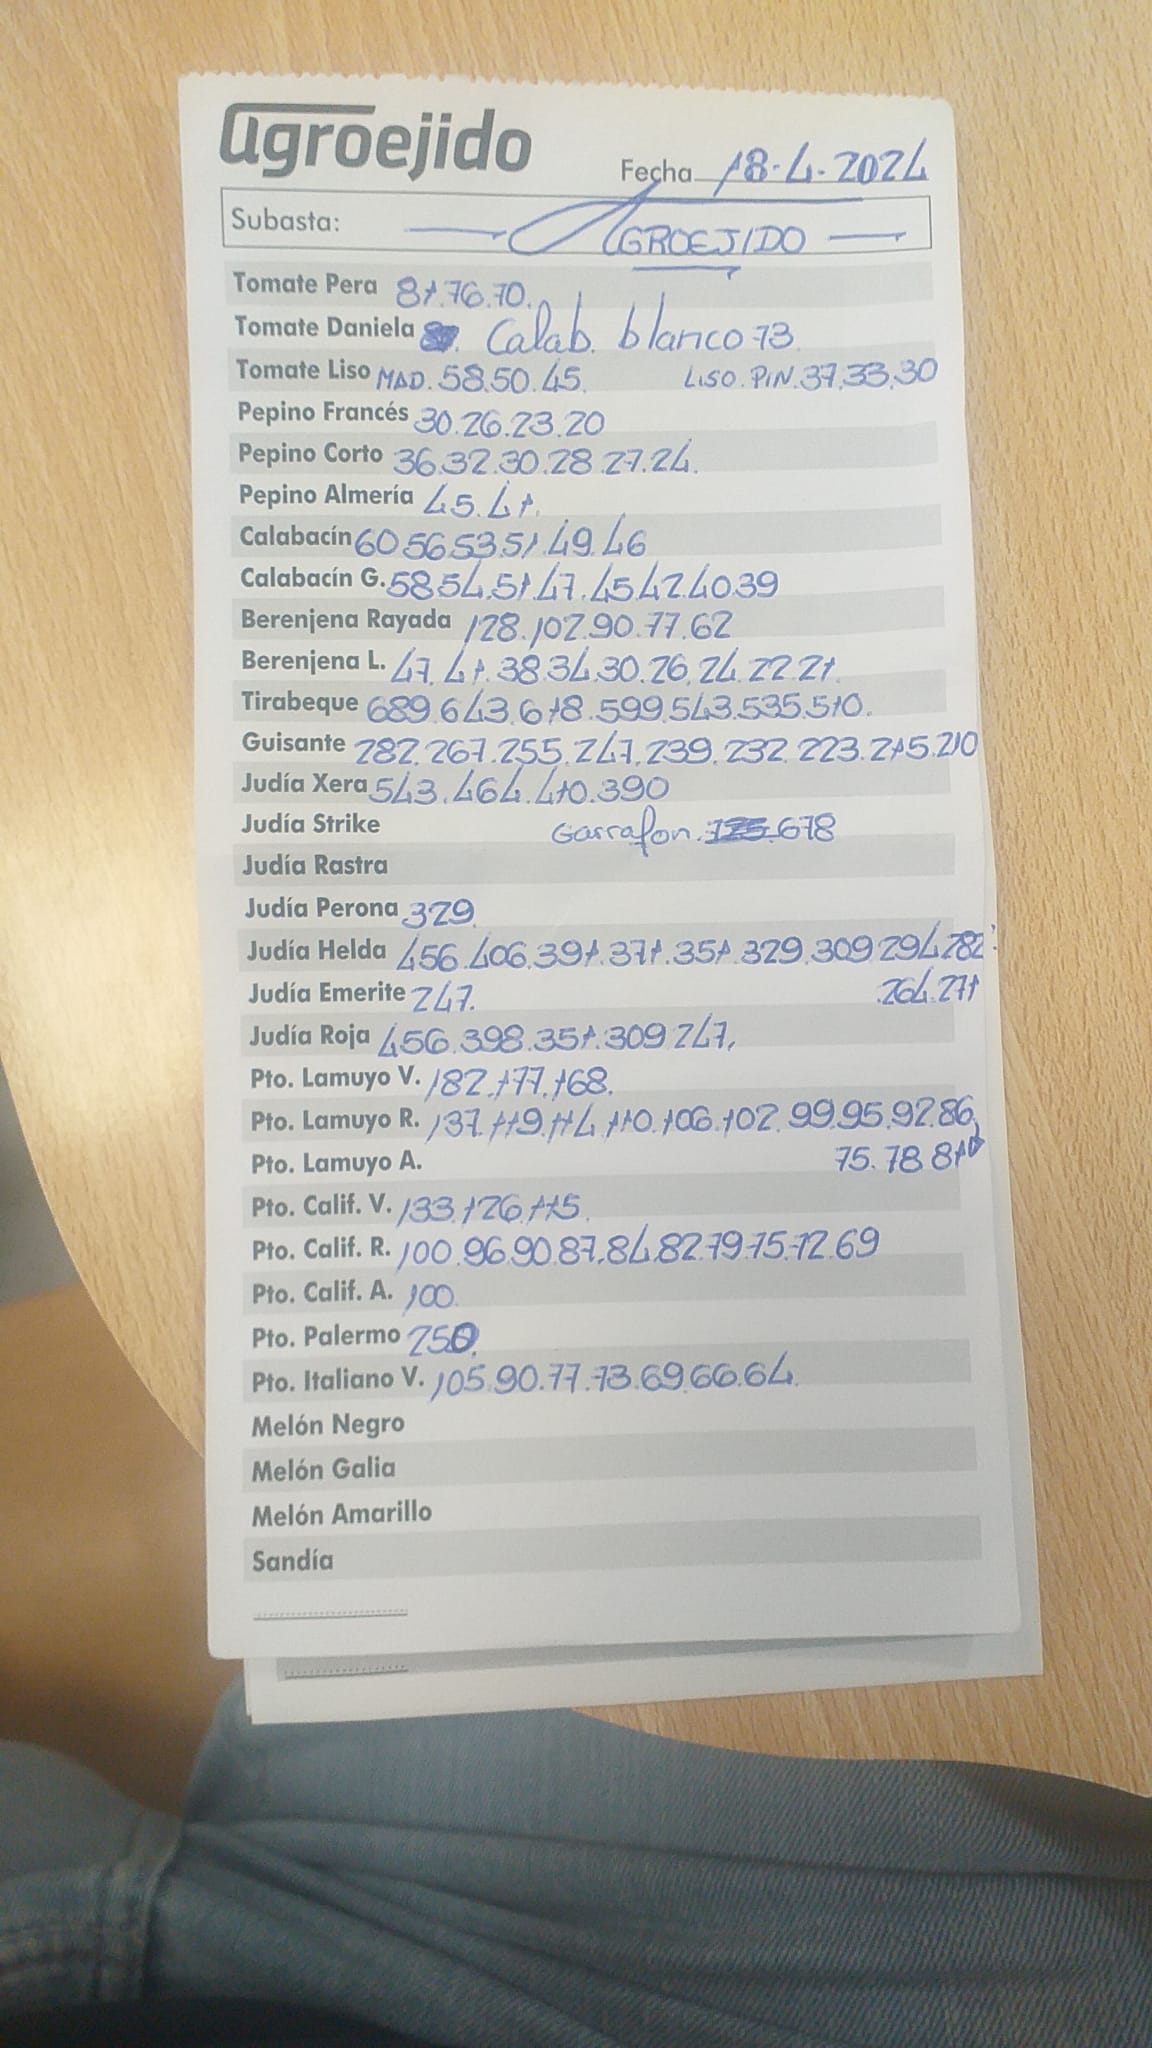 agroejido
Fecha 18-4-2024
Subasta: AGROEJIDO
Tomate Pera 81.76.70.
Tomate Daniela Calab. blanco 73.
Tomate Liso MAD. 58.50.45. LISO. PIN. 37.33.30
Pepino Francés 30.26.23.20
Pepino Corto 36.32.30.28.27.24.
Pepino Almería 45.41.
Calabacín 60.56.53.51.49.46
Calabacín G. 58.54.51.47.45.42.40.39
Berenjena Rayada 128.102.90.77.62
Berenjena L. 47.41.38.34.30.26.24.22.21.
Tirabeque 689.643.618.599.543.535.510.
Guisante 282.267.255.247.239.232.223.215.210
Judía Xera 543.464.410.390
Judía Strike Garrafon. 678
Judía Rastra
Judía Perona 329.
Judía Helda 456.406.391.371.351.329.309.294.282:
Judía Emerite 247. .264.271
Judía Roja 456.398.351.309.247.
Pto. Lamuyo V. 182.177.168.
Pto. Lamuyo R. 137.119.114.110.106.102.99.95.92.86.
Pto. Lamuyo A. 75.78.81
Pto. Calif. V. 133.126.115.
Pto. Calif. R. 100.96.90.87.84.82.79.75.72.69
Pto. Calif. A. 100.
Pto. Palermo 250.
Pto. Italiano V. 105.90.77.73.69.66.64.
Melón Negro
Melón Galia
Melón Amarillo
Sandía